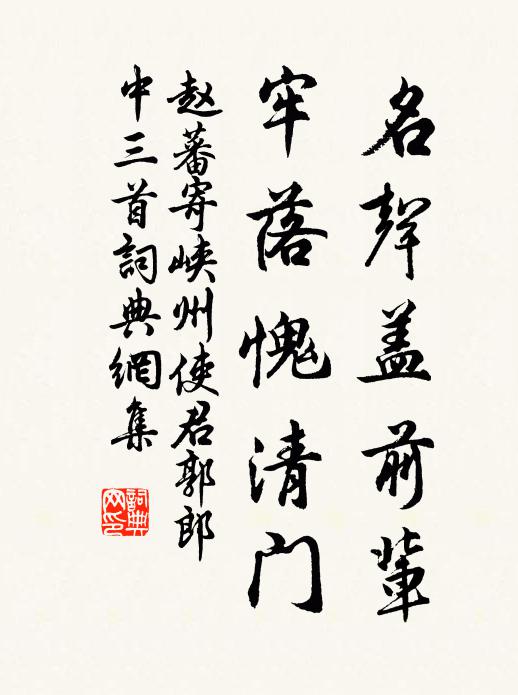 名聲蓋前輩
牢落愧清門
赵蕃寄峽州使君郭郎
中三首詞典網集
詞典
网印